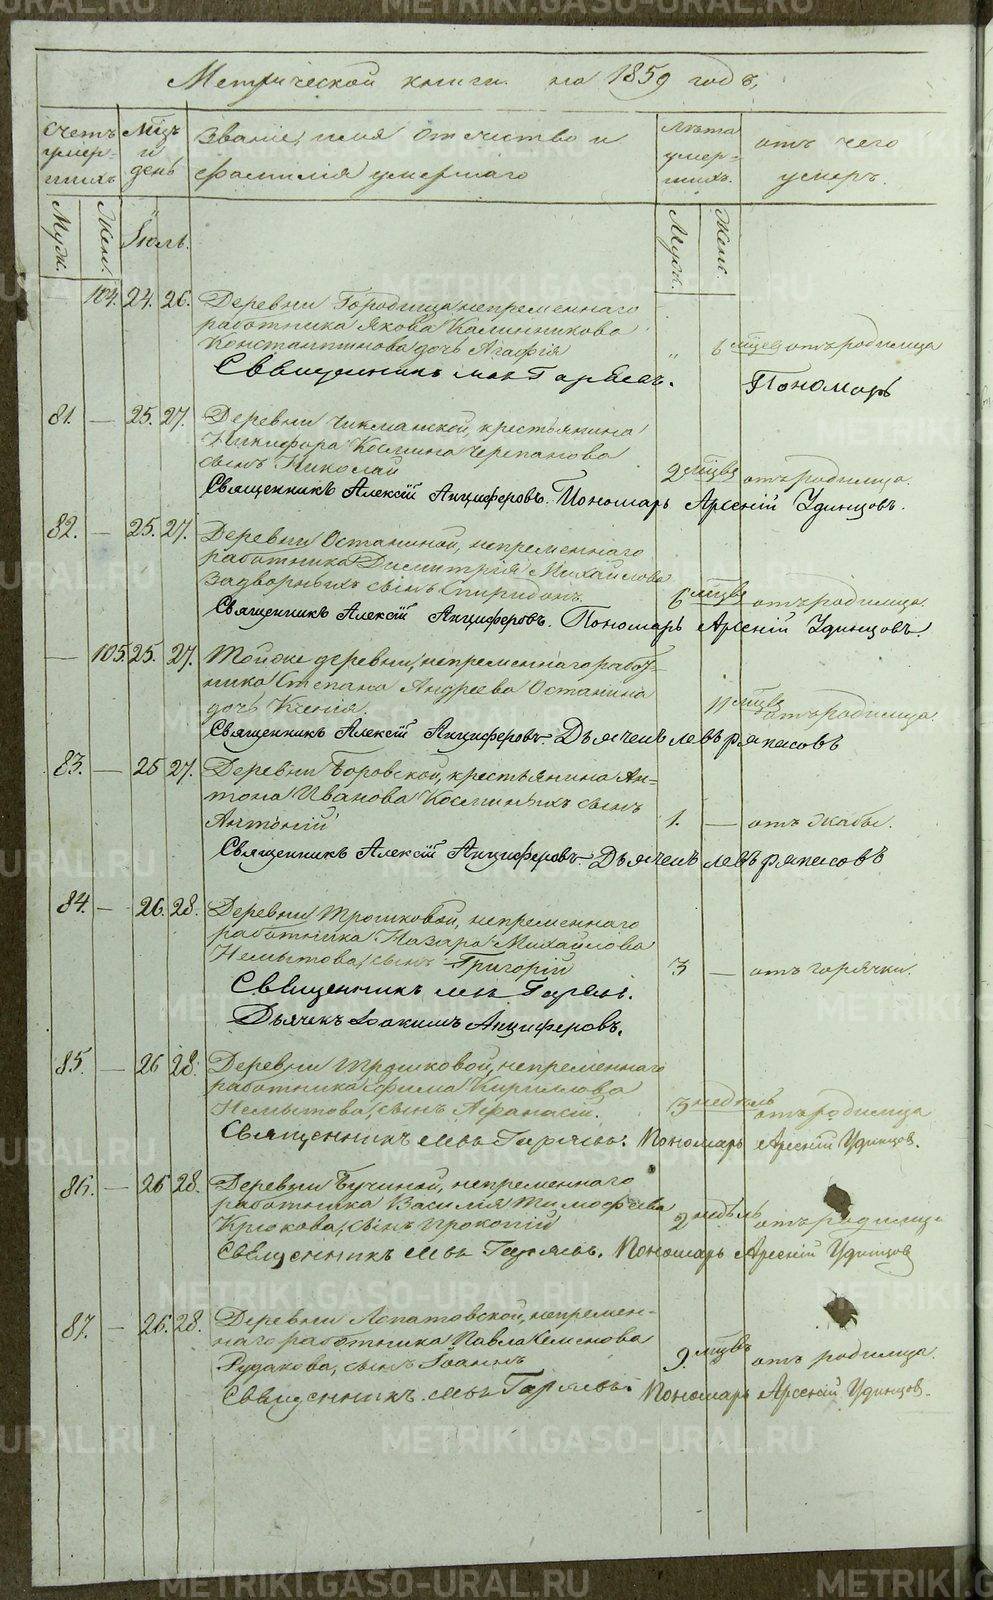 METRIKI.GASO-URAL.RU
Метрической книги на 1859 годъ,
Счетъ умер- шихъ
Мцъ и день
Званіе, имя отчество и
фамилія умершаго
Лѣта умер- шихъ.
отъ чего
умеръ.
Муж. Жен. Іюль. Муж. Женс.
104. 24. 26. Деревни Городища непременнаго
работника Якова Калинникова
Константинова дочь Агафія " 6 мцевъ отъ родимца
Священникъ Пономарь
81. — 25. 27. Деревни Чикманской, крестьянина
Никифора Космина Черепанова
сынъ Николай 2 мцвъ отъ родимца.
Священникъ Алексій Анциферовъ. Пономарь Арсеній Удинцовъ.
82. — 25. 27. Деревни Останиной, непременнаго
работника Димитрія Михайлова
Задворныхъ сынъ Спиридонъ. 6 мцвъ отъ родимца.
Священникъ Алексій Анциферовъ. Пономарь Арсеній Удинцовъ.
— 105. 25. 27. Той же деревни, непременнаго работ-
ника Степана Андреева Останина
дочь Ксенія. 11 мцвъ отъ родимца.
Священникъ Алексій Анциферовъ. Дьячекъ левъ
83. — 25 27. Деревни Боровской, крестьянина Ан-
тона Иванова Косминыхъ сынъ
Антоній 1. — отъ жабы.
Священникъ Алексій Анциферовъ Дьячекъ левъ
84. — 26. 28. Деревни Трошковой, непременнаго
работника Назара Михайлова
Немытова, сынъ Григорій 3 — отъ горячки.
Священникъ
Дьячекъ Іоакимъ Анциферовъ.
85. — 26 28. Деревни Трошковой, непременнаго
работника Ефима Кириллова
Немытова, сынъ Афанасій. 3 недель отъ родимца
Священникъ Пономарь Арсеній Удинцов.
86. — 26 28. Деревни Бучиной, непременнаго
работника Василія Тимофеева
Крюкова, сынъ Прокопій 2 недѣль отъ родимца
Священникъ Пономарь Арсеній Удинцов
87. — 26. 28. Деревни Лопатовской, непремен-
наго работника Павла Семенова
Рудакова, сынъ Іоаннъ 9. мцвъ отъ родимца.
Священникъ Пономарь Арсеній Удинцов.
METRIKI.GASO-URAL.RU